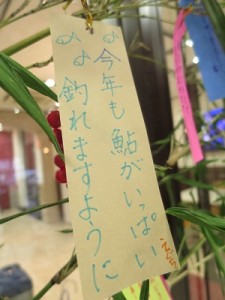 今年も鮎がいっぱい
釣れますように